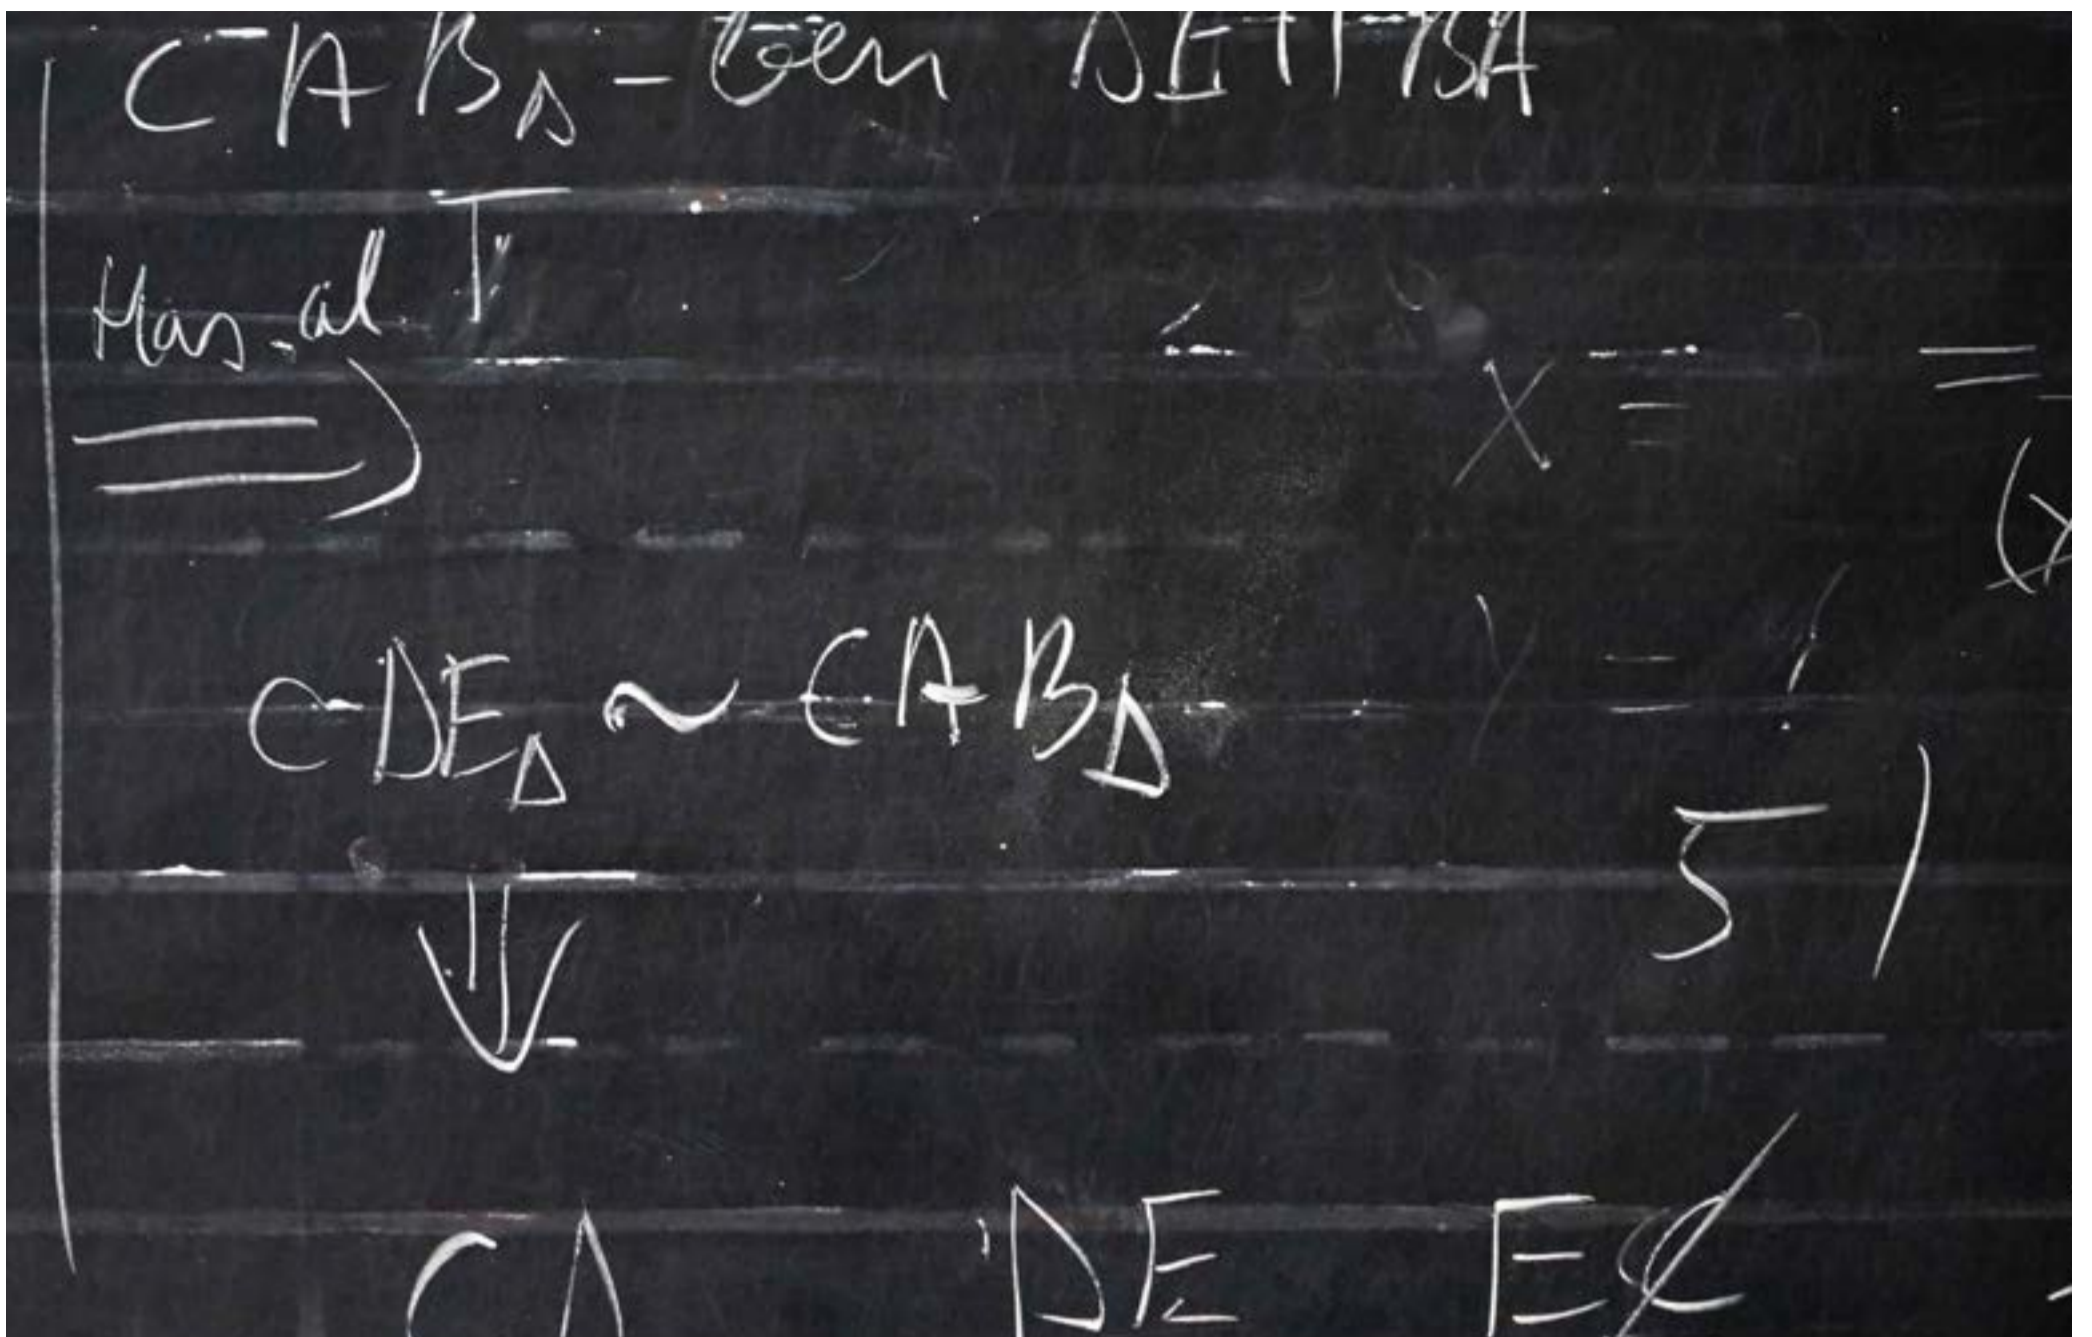 CAB△-ben DE||BA
Has. al. T
⇒
CDE△ ~ CAB△
⇓
CD DE EC
x =
=
51